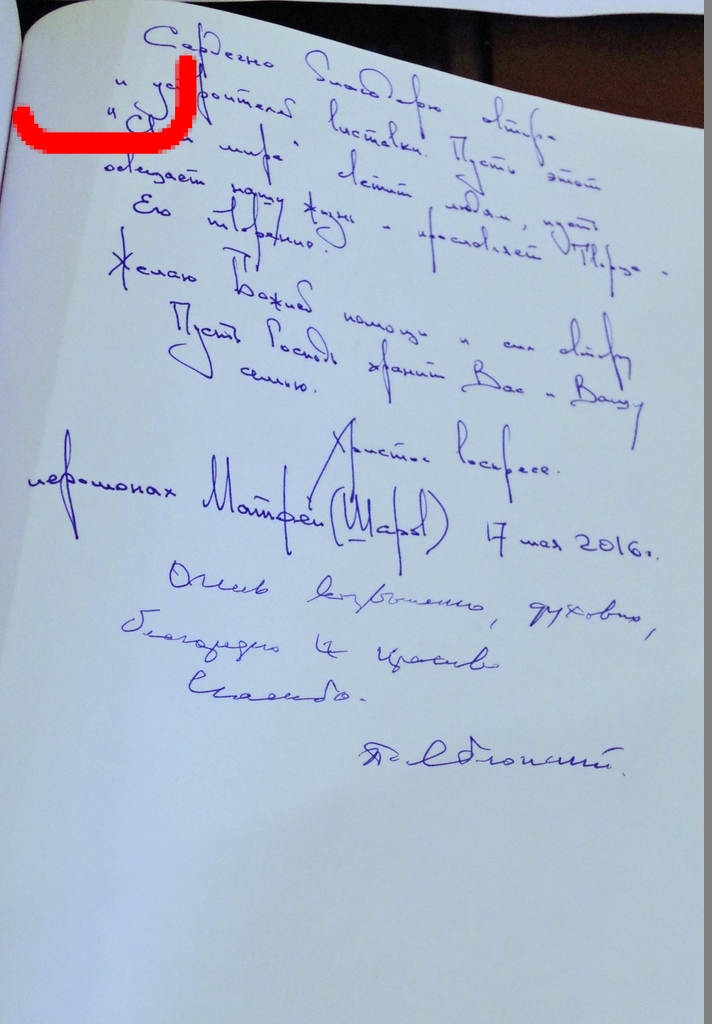 Сердечно благодарю автора
и устроителей выставки. Пусть этот
"Свет мира" светит людям, пусть
освещает нашу жизнь и прославляет Творца -
Его творению.
Желаю Божией помощи и сил автору
Пусть Господь хранит Вас и Вашу
семью.
Христос Воскресе.
иеромонах Матфей (Шаров) 17 мая 2016г.
Очень возвышенно, духовно,
благородно и красиво
Спасибо.